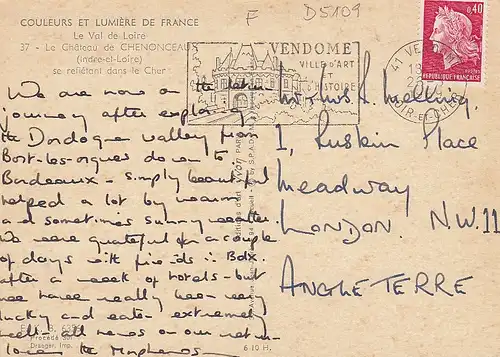 COULEURS ET LUMIÈRE DE FRANCE
Le Val de Loire
37 - Le Château de CHENONCEAU
(Indre-et-Loire)
se reflétant dans le Cher
F D5109
VENDOME
VILLE D'ART
ET
D'HISTOIRE
0,40
REPUBLIQUE FRANÇAISE
41
We are now on the
journey after exploring
the Dordogne valley from
Bort-les-orgues down to
Bordeaux - simply beautiful
helped a lot by warm
and sometimes sunny weather.
We were grateful for a couple
of days with friends in Bdx.
after a week of hotels - but
we have really been very
lucky and eaten extremely
well - all news on our return
love
Melling,
1, Ruskin Place
Meadway
LONDON. N.W.11
ANGLETERRE
Procédé sur
Draeger, Imp.
6 10 H.